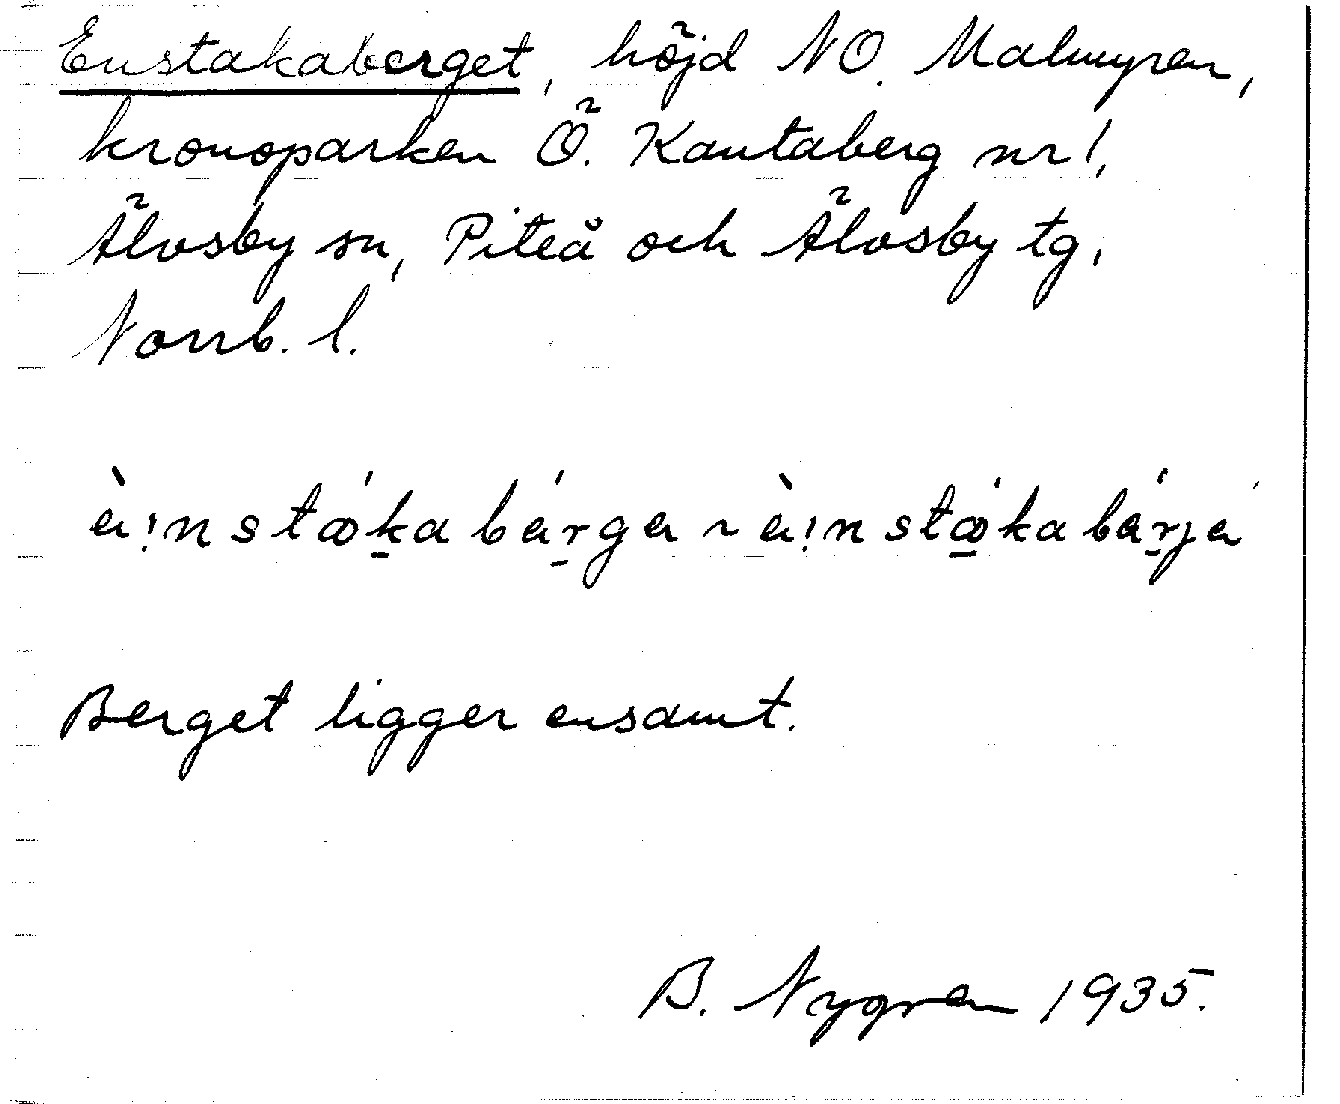 Enstakaberget, höjd NO. Malmyren,
kronoparken Ö. Kantaberg nr 1,
Älvsby sn, Piteå och Älvsby tg.
Norrb. l.
Berget ligger ensamt.
B. Nygren 1935.